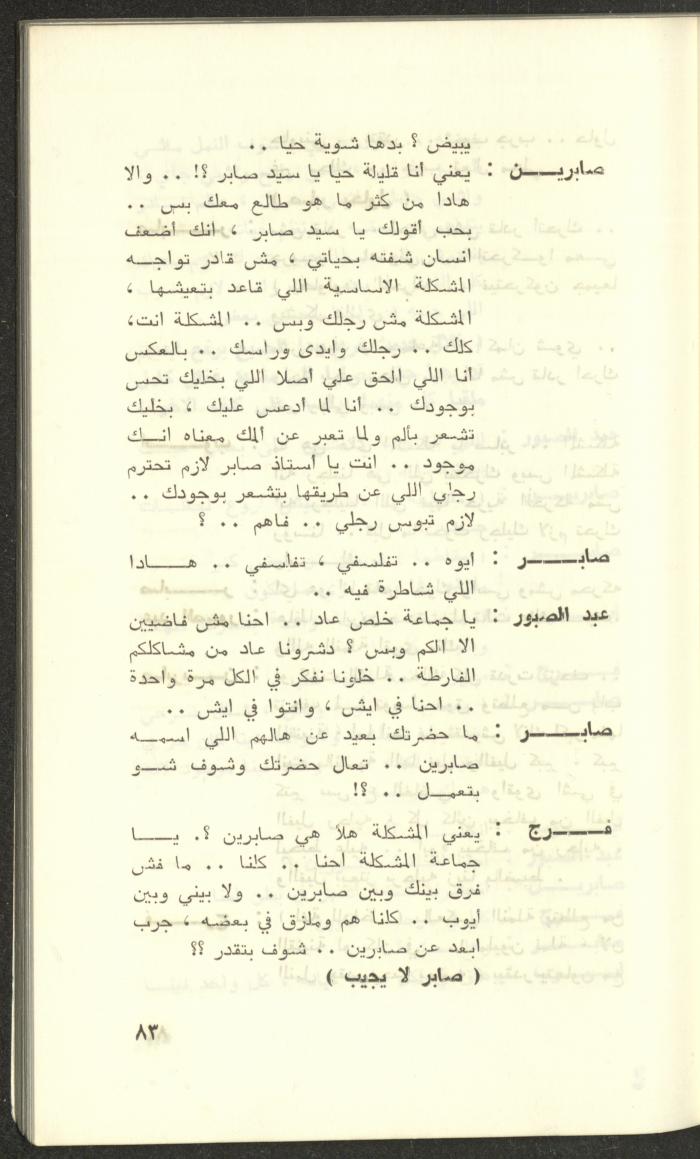 يبيض ؟ بدها شوية حيا . .
صابريـــن : يعني أنا قليلة حيا يا سيد صابر ؟! . . والا
هادا من كثر ما هو طالع معك بس . .
بحب أقولك يا سيد صابر ، انك أضعف
انسان شفته بحياتي ، مش قادر تواجـــه
المشكلة الاساسية اللي قاعد بتعيشها ،
المشكلة مش رجلك وبس . . المشكلة انت،
كلك . . رجلك وايدى وراسك . . بالعكس
أنا اللي الحق علي أصلا اللي بخليك تحس
بوجودك . . أنا لما أدعس عليك ، بخليك
تشعر بألم ولما تعبر عن ألمك معناه انـــك
موجود . . انت يا أستاذ صابر لازم تحترم
رجلي اللي عن طريقها بتشعر بوجودك . .
لازم تبوس رجلي . . فاهم . . ؟
صابـــــر : ايوه . . تفلسفي ، تفلسفي . . هــــادا
اللي شاطرة فيه . .
عبد الصبور : يا جماعة خلص عاد . . احنا مش فاضيين
الا الكم وبس ؟ دشرونا عاد من مشاكلكم
الفارطة . . خلونا نفكر في الكل مرة واحدة
. . احنا في ايش ، وانتوا في ايش . .
صابـــــر : ما حضرتك بعيد عن هالهم اللي اسمـــه
صابرين . . تعال حضرتك وشوف شـــو
بتعمـــل . . ؟!
فــــرج : يعني المشكلة هلأ هي صابرين ؟. يـــا
جماعة المشكلة احنا . . كلنا . . ما فش
فرق بينك وبين صابرين . . ولا بيني وبين
أيوب . . كلنا هم وملزق في بعضه ، جرب
ابعد عن صابرين . . شوف بتقدر ؟؟
( صابر لا يجيب )
٨٣